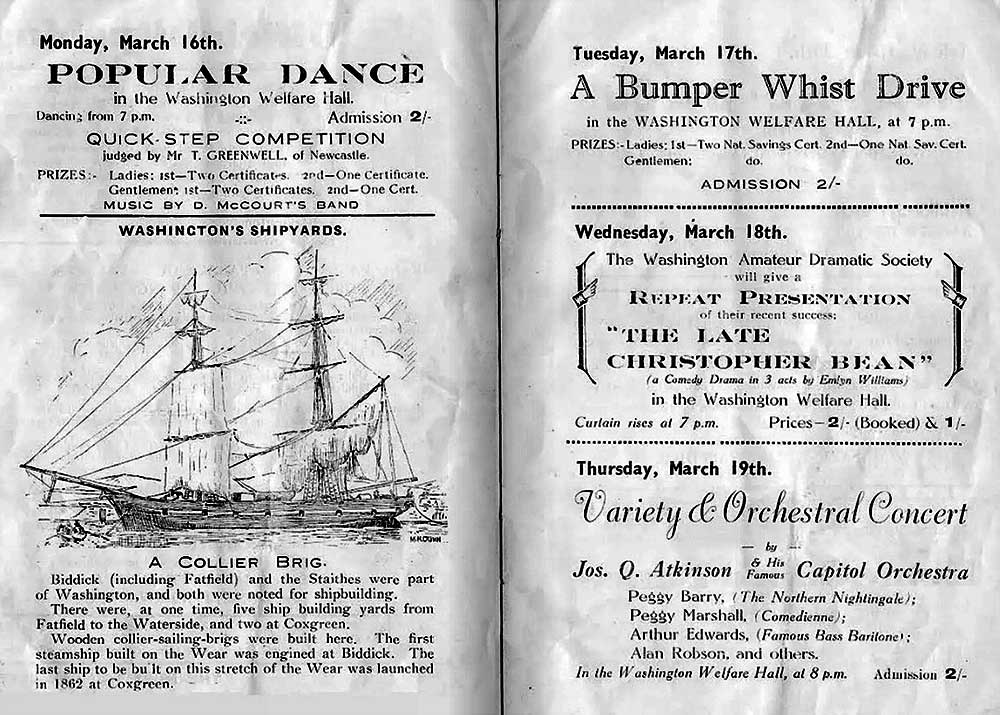 Monday, March 16th.
POPULAR DANCE
in the Washington Welfare Hall.
Dancing from 7 p.m. -::- Admission 2/-
QUICK-STEP COMPETITION
judged by Mr T. GREENWELL, of Newcastle.
PRIZES:- Ladies: 1st—Two Certificates. 2nd—One Certificate.
Gentlemen: 1st—Two Certificates. 2nd—One Cert.
MUSIC BY D. McCOURT'S BAND
WASHINGTON'S SHIPYARDS.
A COLLIER BRIG.
Biddick (including Fatfield) and the Staithes were part
of Washington, and both were noted for shipbuilding.
There were, at one time, five ship building yards from
Fatfield to the Waterside, and two at Coxgreen.
Wooden collier-sailing-brigs were built here. The first
steamship built on the Wear was engined at Biddick. The
last ship to be built on this stretch of the Wear was launched
in 1862 at Coxgreen.
Tuesday, March 17th.
A Bumper Whist Drive
in the WASHINGTON WELFARE HALL, at 7 p.m.
PRIZES:- Ladies: 1st—Two Nat. Savings Cert. 2nd—One Nat. Sav. Cert.
Gentlemen: do. do.
ADMISSION 2/-
Wednesday, March 18th.
The Washington Amateur Dramatic Society
will give a
REPEAT PRESENTATION
of their recent success:
"THE LATE
CHRISTOPHER BEAN"
(a Comedy Drama in 3 acts by Emlyn Williams)
in the Washington Welfare Hall.
Curtain rises at 7 p.m. Prices—2/- (Booked) & 1/-
Thursday, March 19th.
Variety & Orchestral Concert
— by —
Jos. Q. Atkinson & His Famous Capitol Orchestra
Peggy Barry, (The Northern Nightingale);
Peggy Marshall, (Comedienne);
Arthur Edwards, (Famous Bass Baritone);
Alan Robson, and others.
In the Washington Welfare Hall, at 8 p.m. Admission 2/-